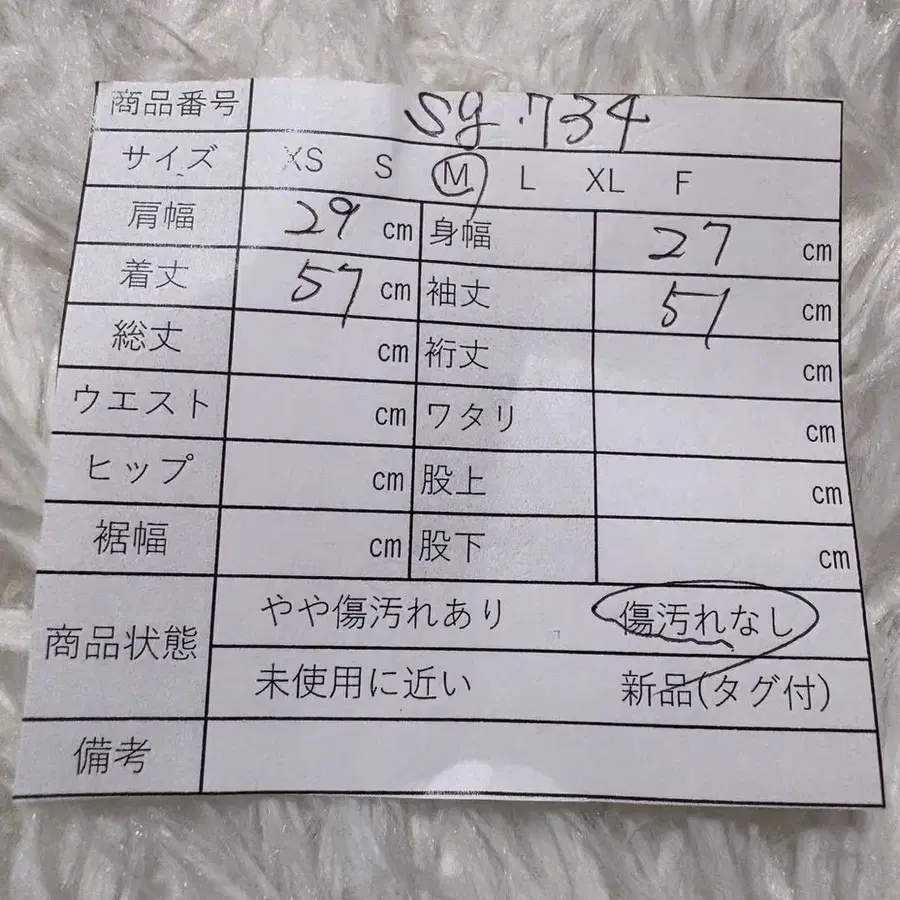 商品番号 sg.734
サイズ XS S M L XL F
肩幅 29 cm 身幅 27 cm
着丈 57 cm 袖丈 51 cm
総丈 cm 裄丈 cm
ウエスト cm ワタリ cm
ヒップ cm 股上 cm
裾幅 cm 股下 cm
商品状態 やや傷汚れあり 傷汚れなし
未使用に近い 新品(タグ付)
備考